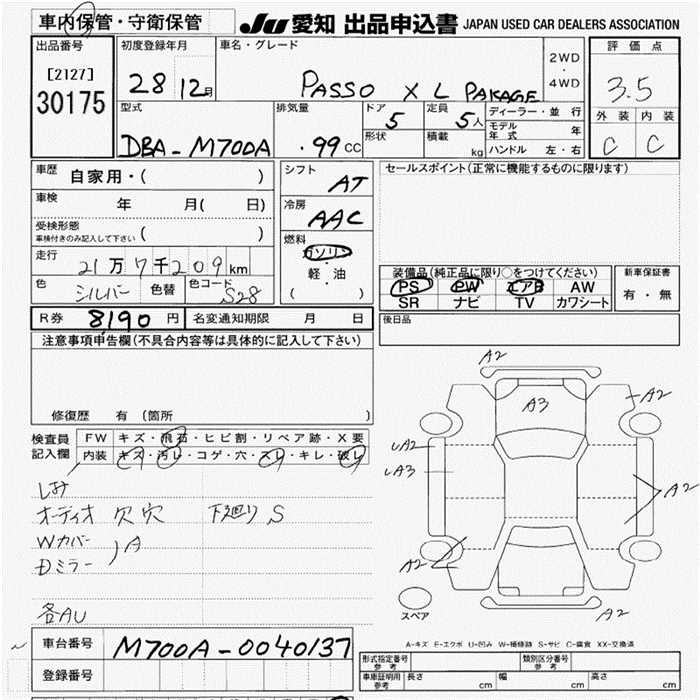 車内保管・守衛保管
JU 愛知 出品申込書 JAPAN USED CAR DEALERS ASSOCIATION
出品番号
[2127]
30175
初度登録年月
28 12月
車名・グレード
PASSO X L PAKAGE
2WD
・
4WD
評価点
3.5
外装 内装
C C
型式
DBA-M700A
排気量
.99 CC
ドア
5
定員
5人
形状
積載
kg
ディーラー・並行
モデル年式 年
ハンドル 左・右
車歴
自家用・( )
車検
年 月( 日)
受検形態
車検付きのみ記入して下さい
( )
走行
21万7千209km
色
シルバー
色替
色コード
S28
シフト
AT
冷房
AAC
燃料
ガソリン
軽・油
( )
セールスポイント(正常に機能するものに限ります)
装備品(純正品に限り○をつけてください)
PS PW エアB AW
SR ナビ TV カワシート
新車保証書
有・無
R券 8,190 円 名変通知期限 月 日
後日品
注意事項申告欄(不具合内容等は具体的に記入して下さい)
修復歴 有 (箇所 )
検査員記入欄
FW キズ・飛石・ヒビ割・リペア跡・X要
内装 キズ・汚レ・コゲ・穴・スレ・キレ・破レ
オーディオ 欠穴 下廻り S
Wカバー
Dミラー
)A
各AU
A2
A3
A2
A2
A3
A2
A2
A2
スペア
A-キズ E-エクボ U-凹み W-補修跡 S-サビ C-腐食 XX-交換済
車台番号 M700A-0040137
登録番号
型式指定番号 参考
類別区分番号 参考
車庫証明用 参考
長さ cm
幅 cm
高さ cm